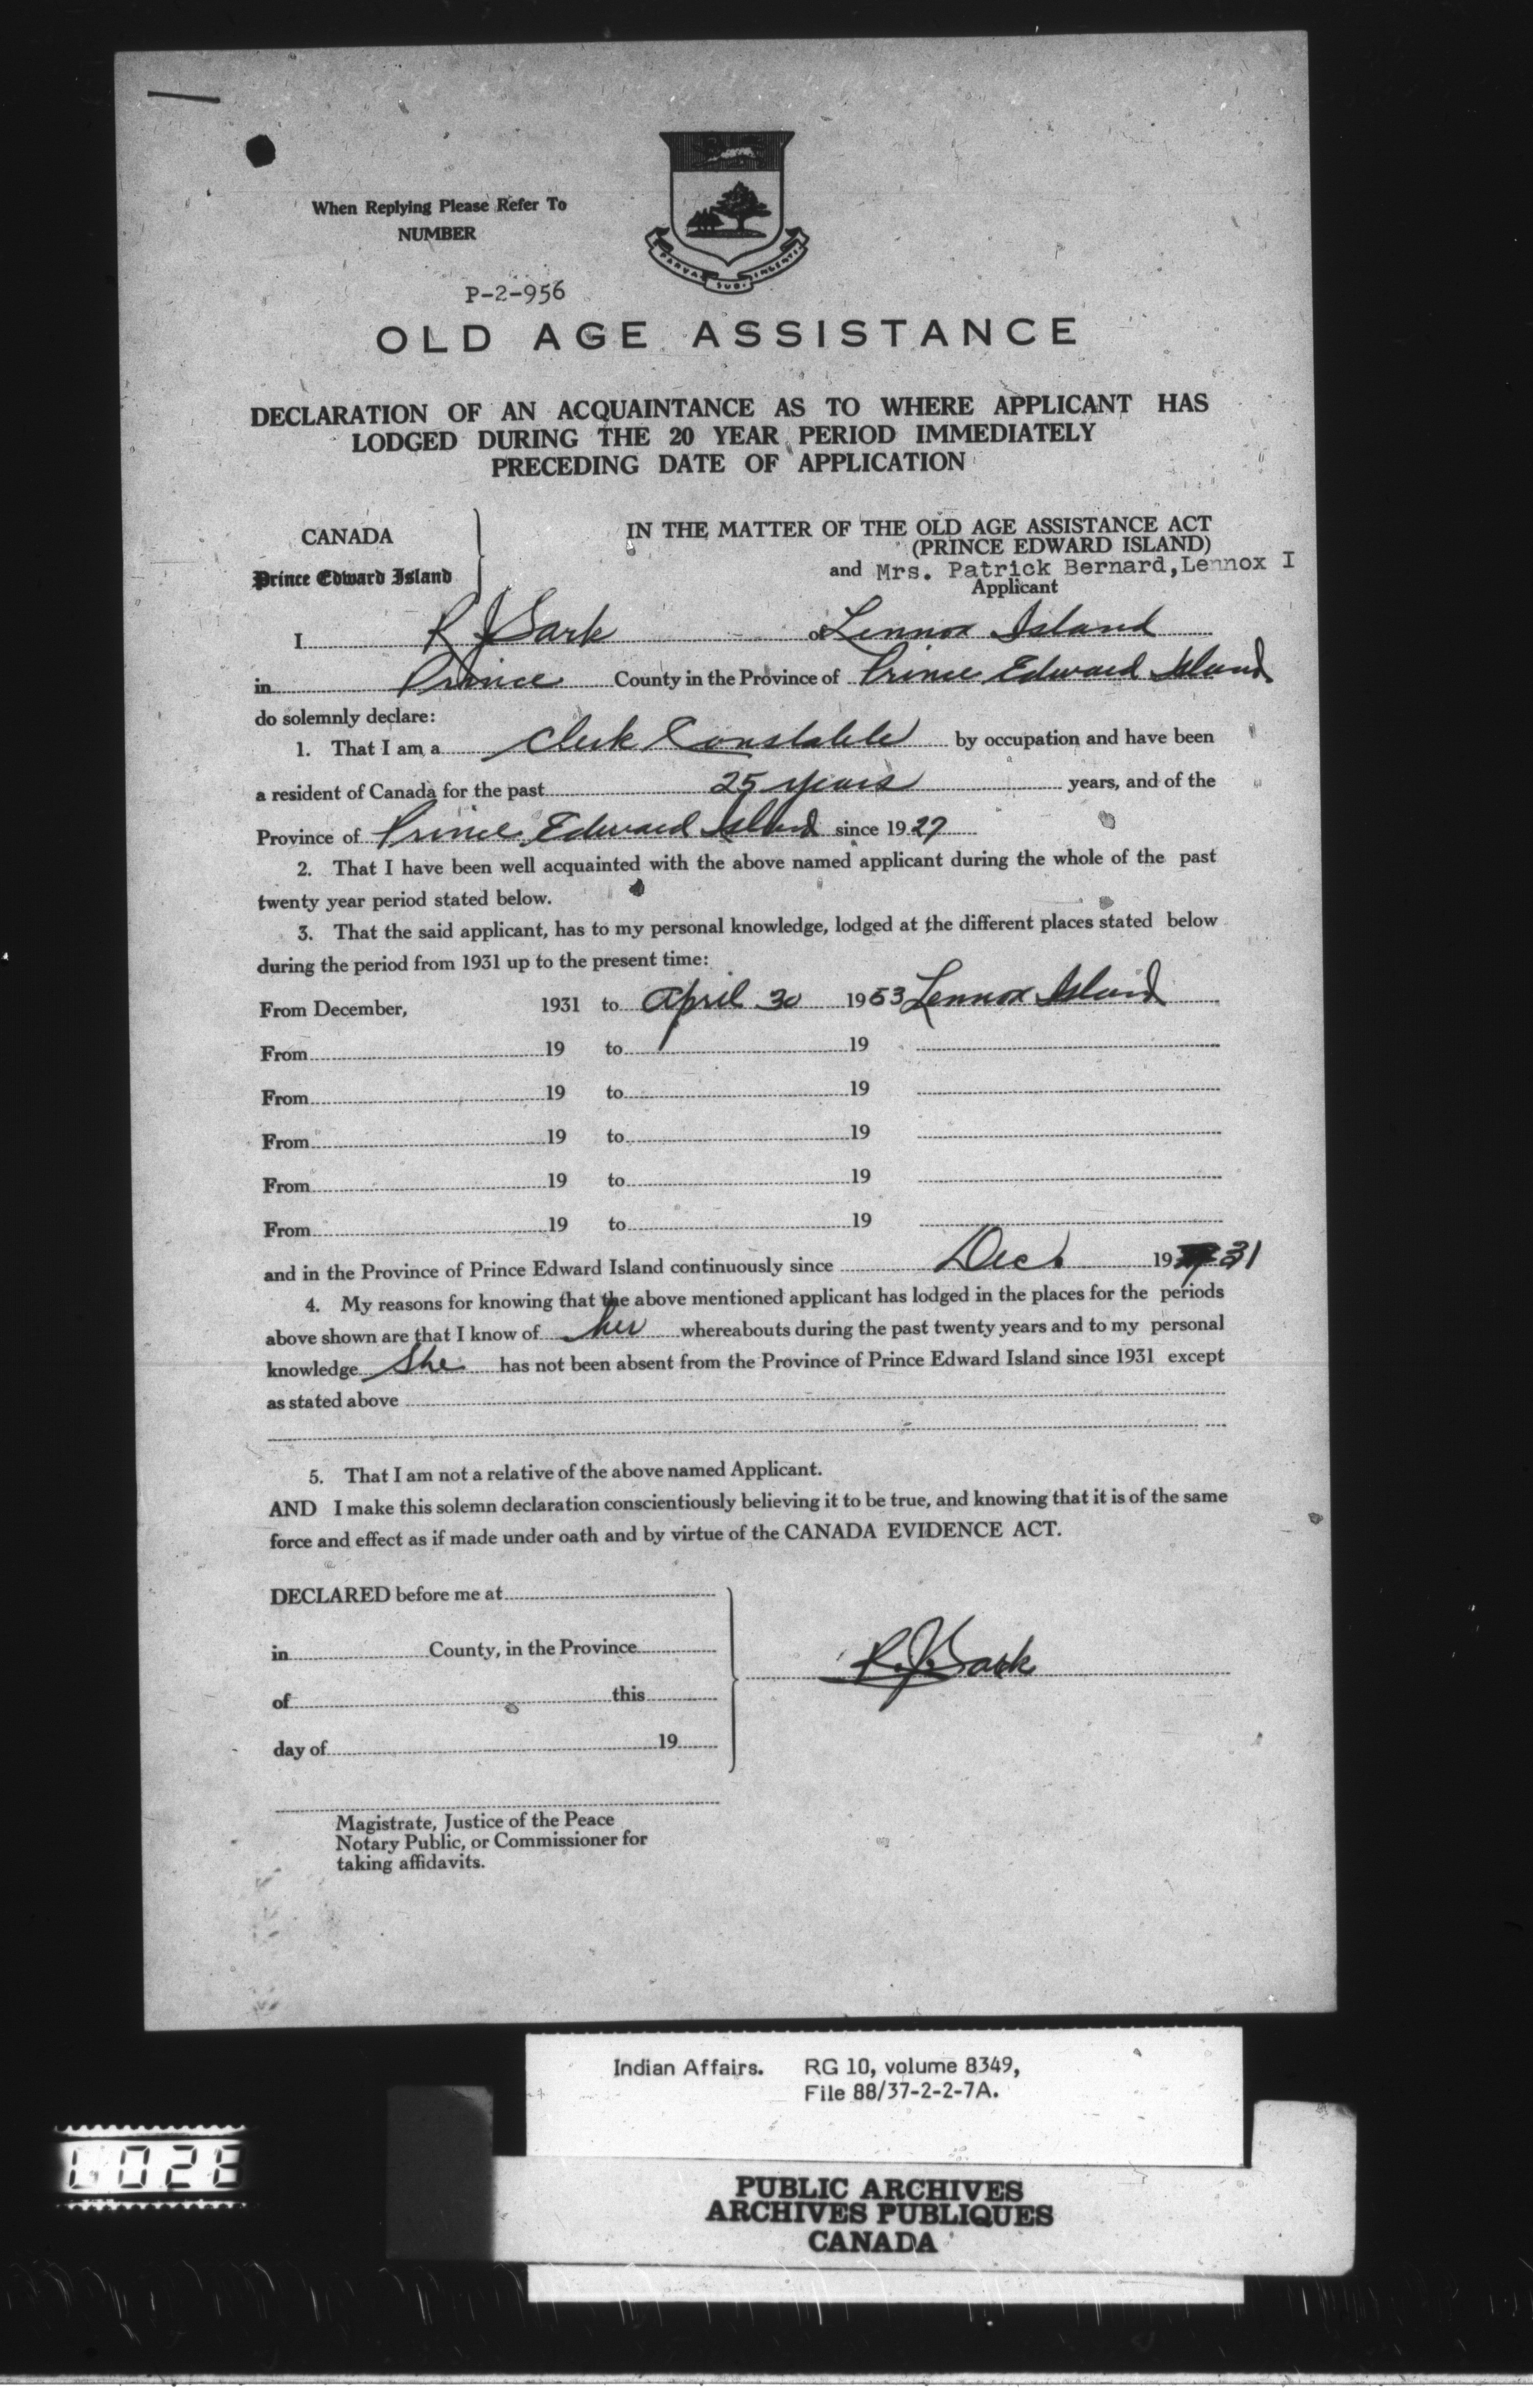 When Replying Please Refer To
NUMBER
PARVA SUB INGENTI
P-2-956
OLD AGE ASSISTANCE
DECLARATION OF AN ACQUAINTANCE AS TO WHERE APPLICANT HAS
LODGED DURING THE 20 YEAR PERIOD IMMEDIATELY
PRECEDING DATE OF APPLICATION
CANADA
Prince Edward Island
IN THE MATTER OF THE OLD AGE ASSISTANCE ACT
(PRINCE EDWARD ISLAND)
and Mrs. Patrick Bernard, Lennox I
Applicant
I R J Sark of Lennox Island
in Prince County in the Province of Prince Edward Island
do solemnly declare:
1. That I am a Clerk Constable by occupation and have been
a resident of Canada for the past 25 years years, and of the
Province of Prince Edward Island since 1927
2. That I have been well acquainted with the above named applicant during the whole of the past
twenty year period stated below.
3. That the said applicant, has to my personal knowledge, lodged at the different places stated below
during the period from 1931 up to the present time:
From December, 1931 to April 30 1953 Lennox Island
From 19 to 19
From 19 to 19
From 19 to 19
From 19 to 19
From 19 to 19
and in the Province of Prince Edward Island continuously since Dec. 19 31
4. My reasons for knowing that the above mentioned applicant has lodged in the places for the periods
above shown are that I know of her whereabouts during the past twenty years and to my personal
knowledge she has not been absent from the Province of Prince Edward Island since 1931 except
as stated above
5. That I am not a relative of the above named Applicant.
AND I make this solemn declaration conscientiously believing it to be true, and knowing that it is of the same
force and effect as if made under oath and by virtue of the CANADA EVIDENCE ACT.
DECLARED before me at
in County, in the Province
of this
day of 19
R. J. Sark
Magistrate, Justice of the Peace
Notary Public, or Commissioner for
taking affidavits.
Indian Affairs. RG 10, volume 8349,
File 88/37-2-2-7A.
PUBLIC ARCHIVES
ARCHIVES PUBLIQUES
CANADA